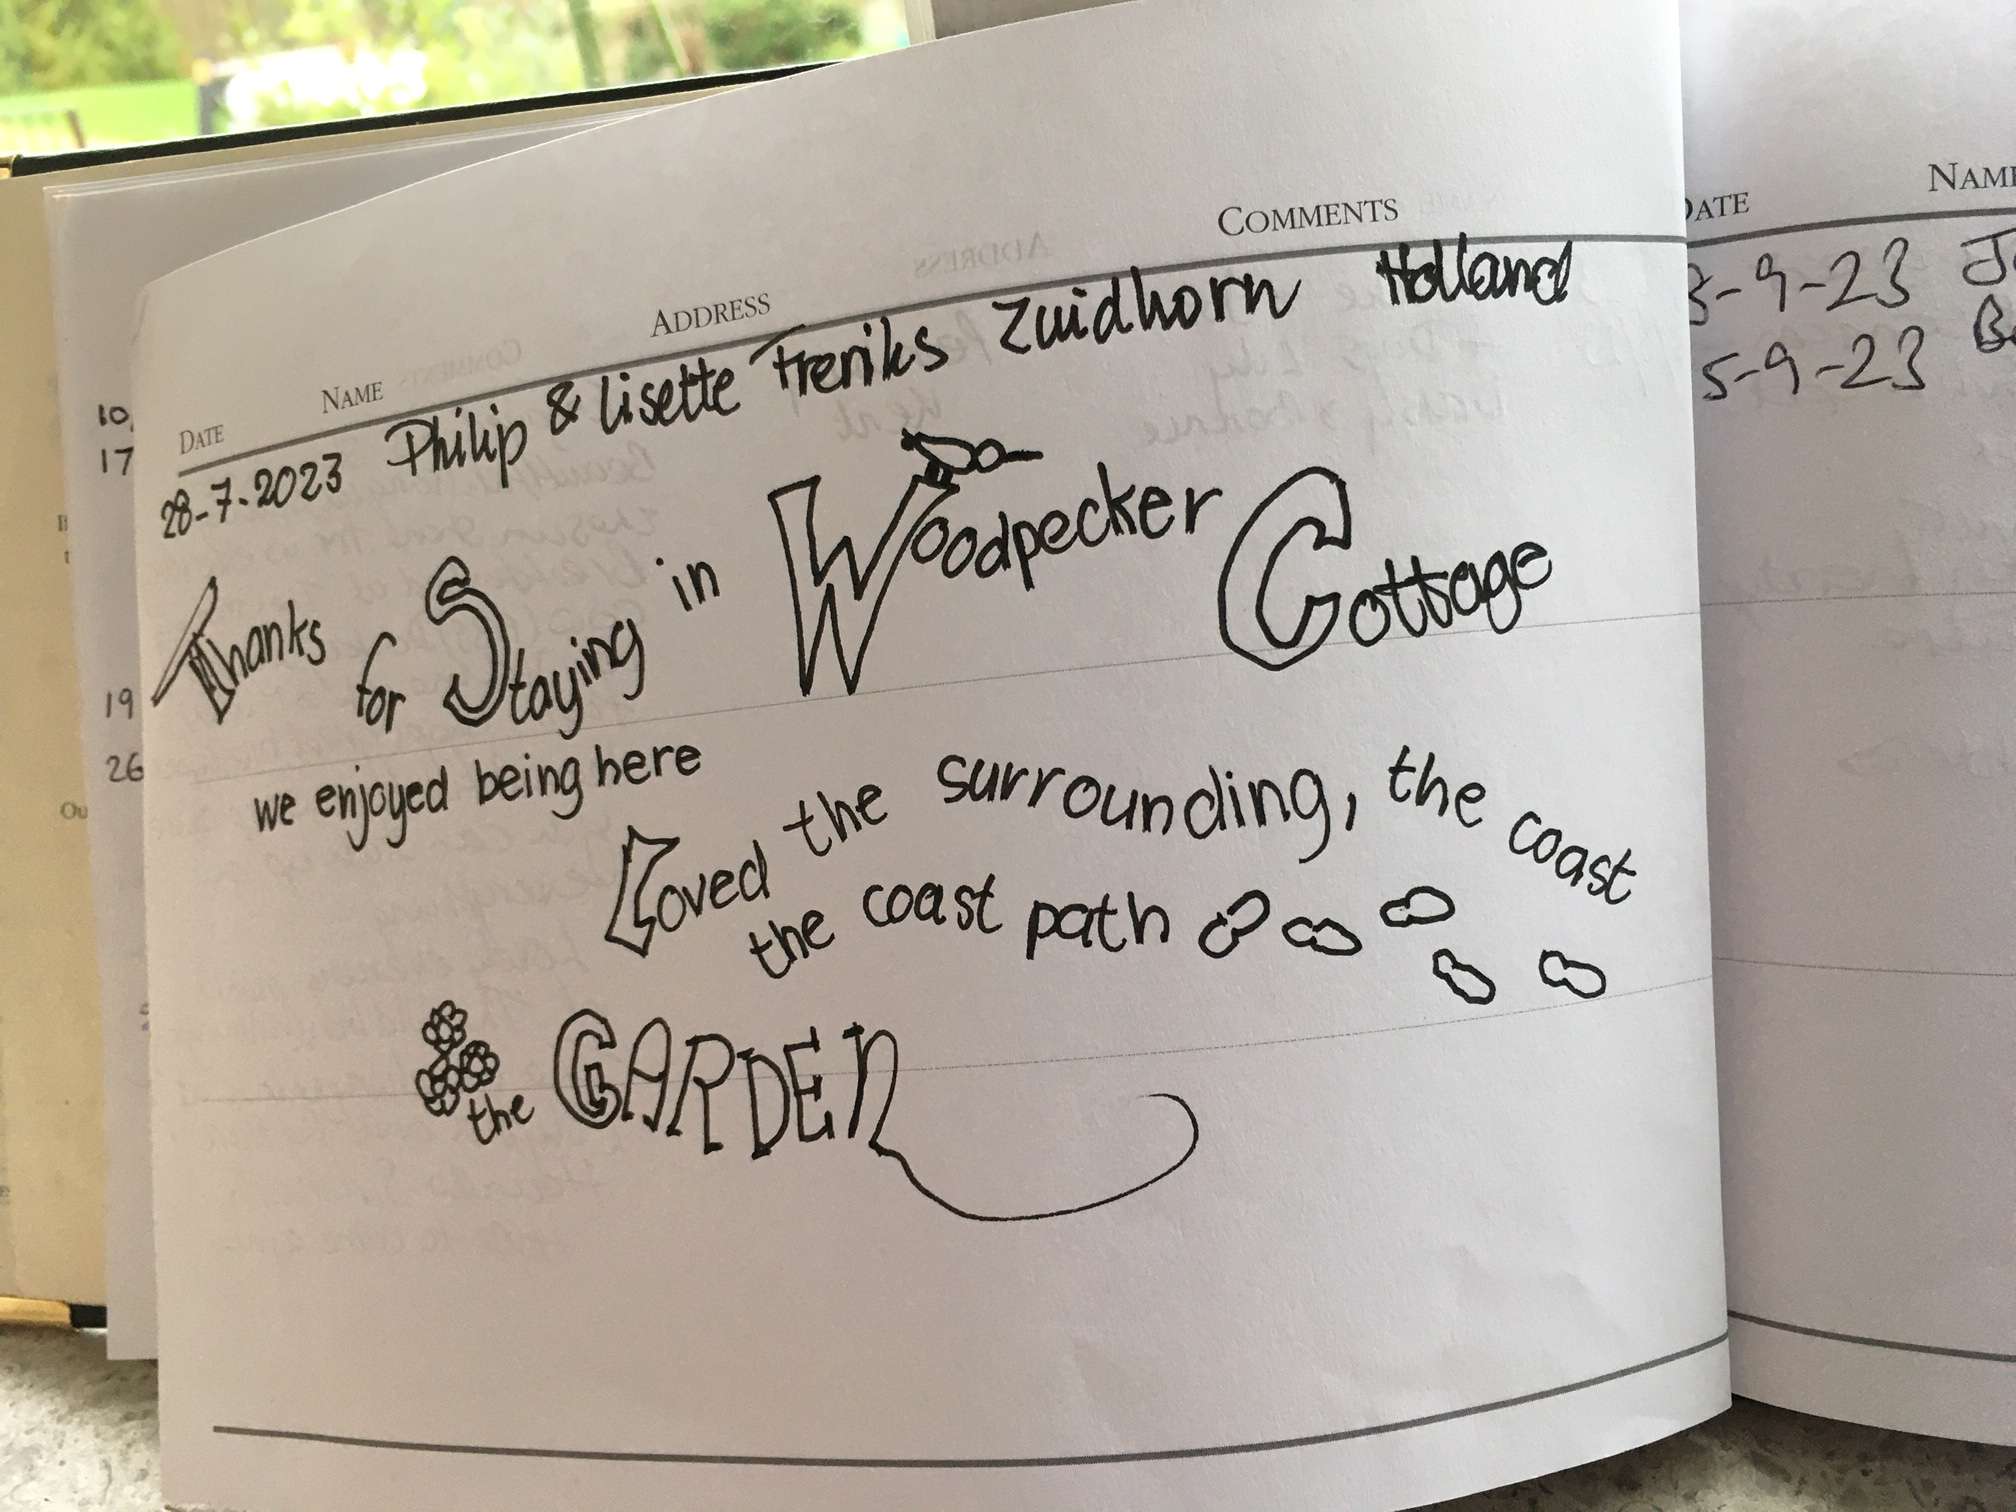 DATE NAME ADDRESS COMMENTS
28-7-2023 Philip & Lisette Freriks Zuidhorn Holland
Thanks for Staying in Woodpecker Cottage
we enjoyed being here
Loved the surrounding, the coast
the coast path
the GARDEN
10
17
19
26
DATE
3-9-23
5-9-23